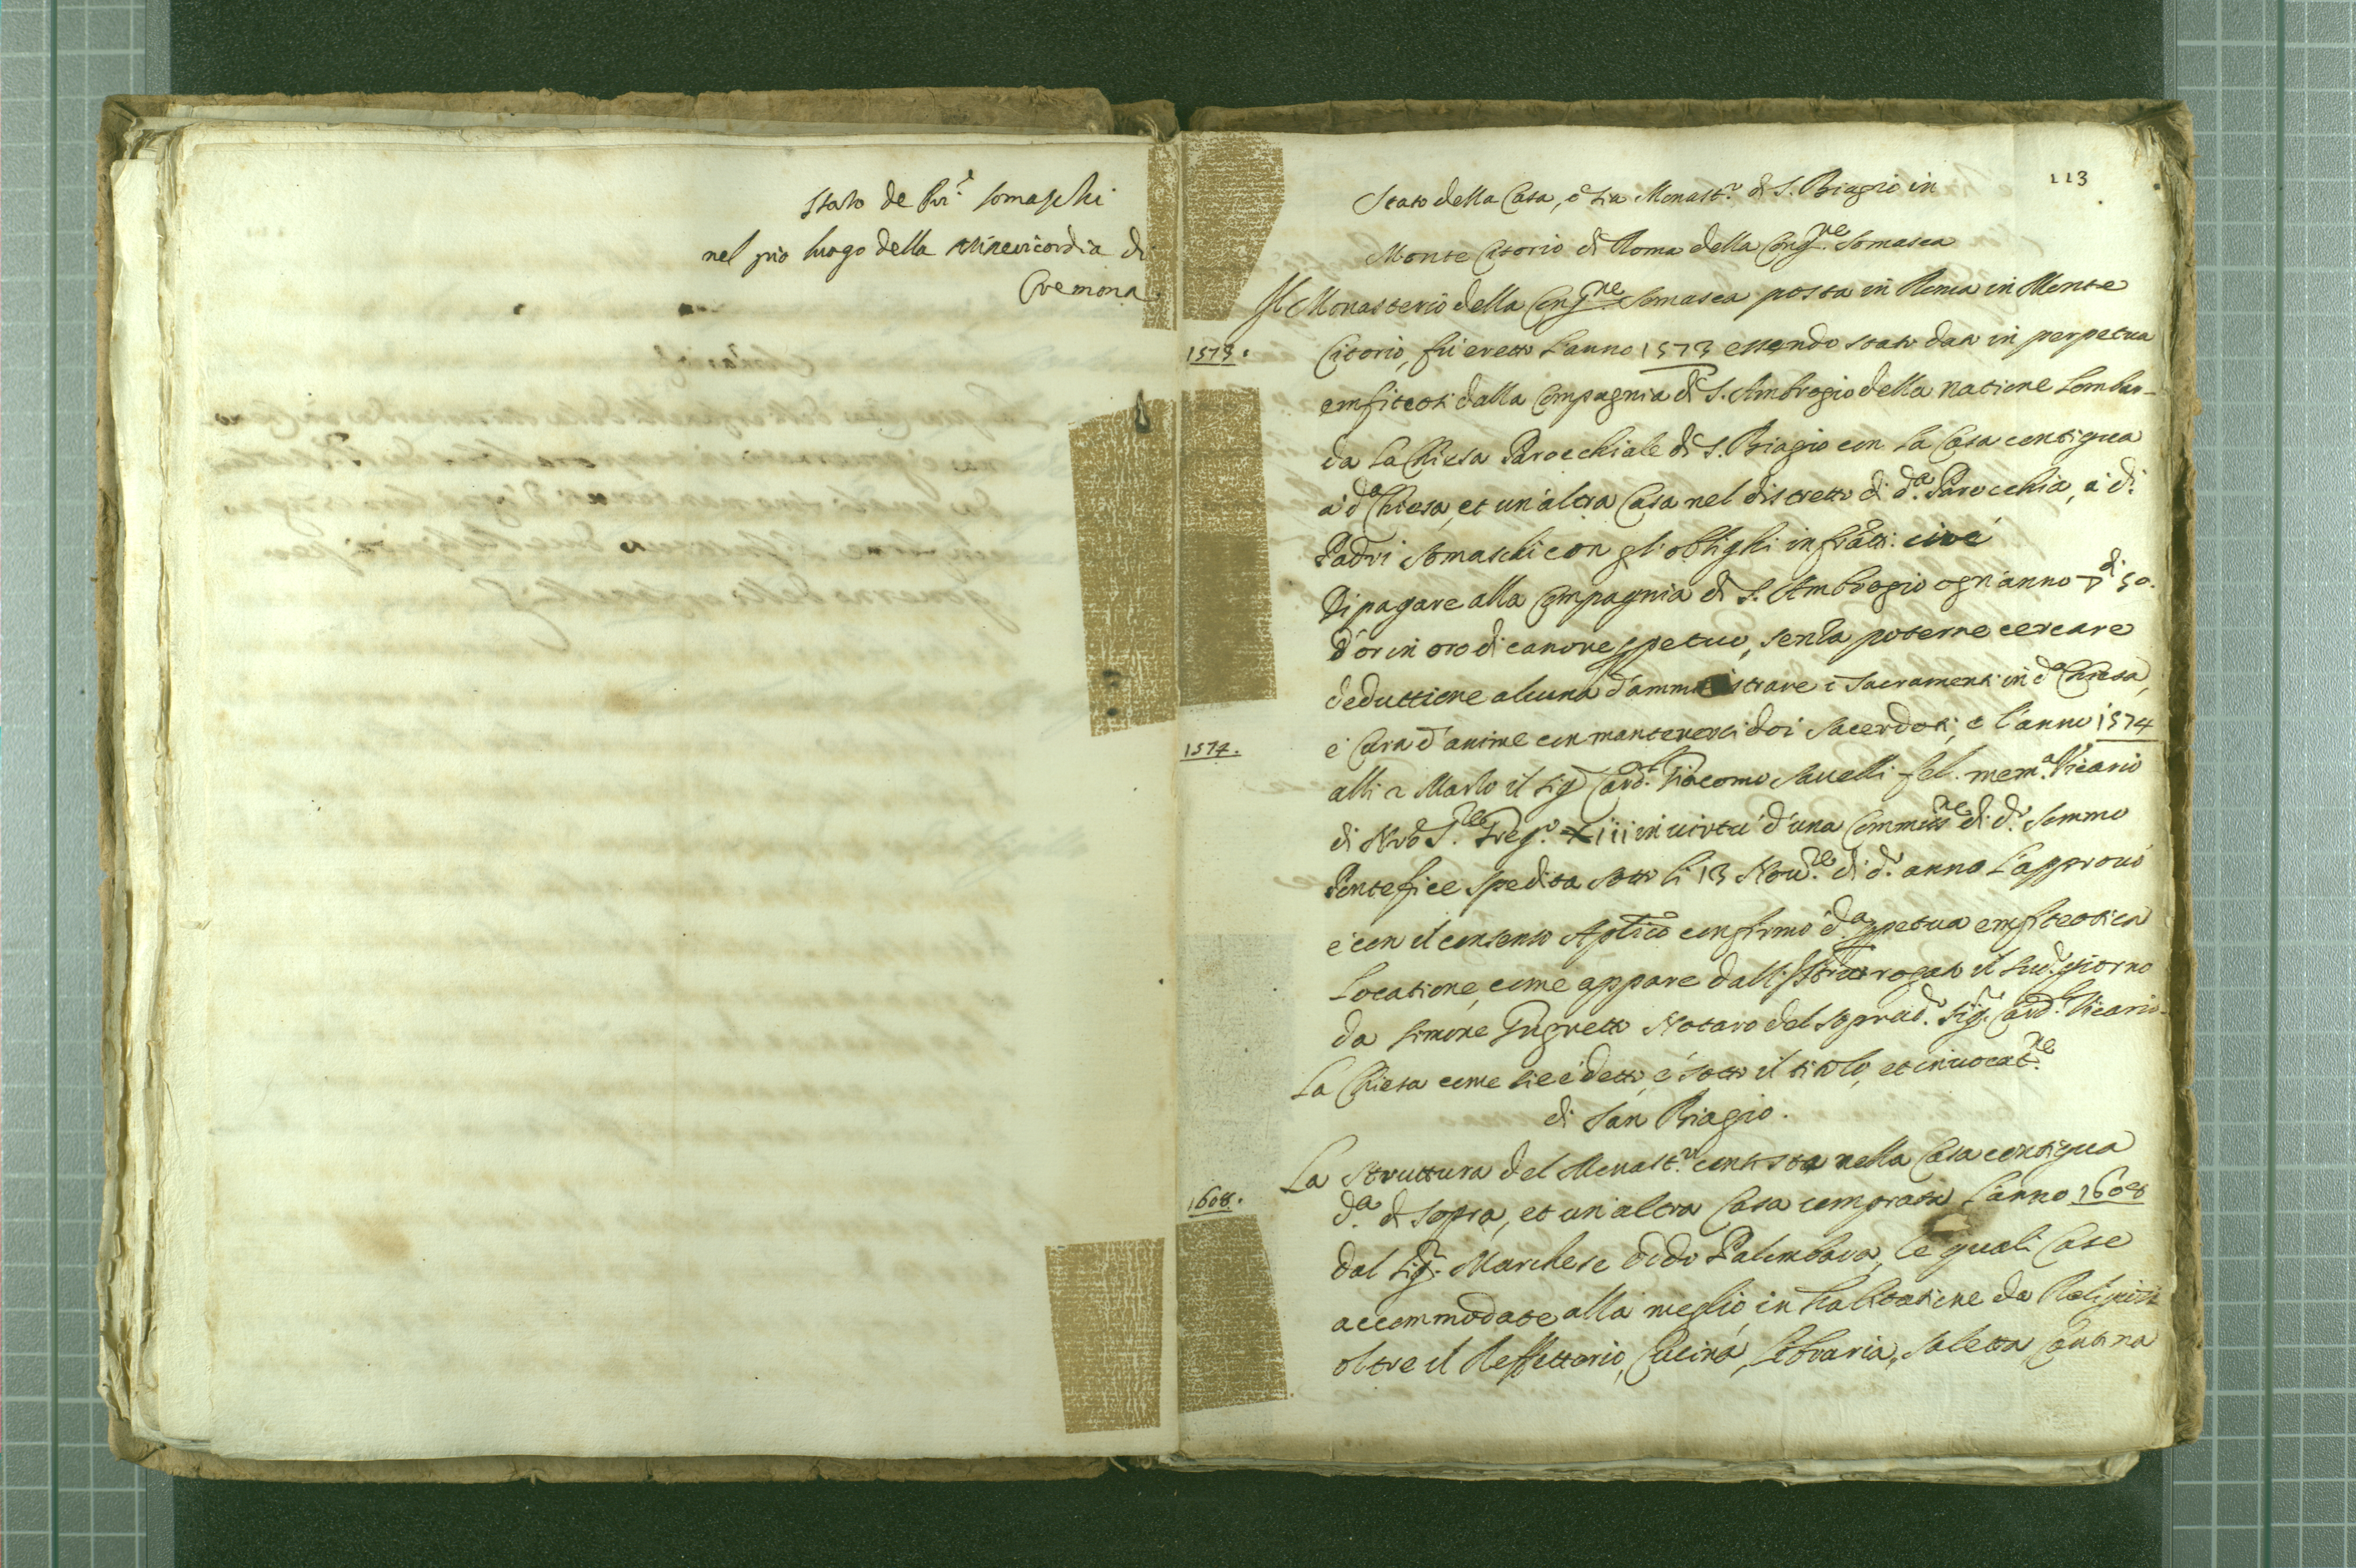 stato de Pri Somaschi
nel pio luogo della Misericordia di
Cremona.
113
Stato della Casa, ò sia Monast.o di S. Biagio in
Monte Citorio di Roma della Cong.ne Somasca
Il Monasterio della Cong.ne Somasca posta in Roma in Monte
1573.
Citorio, fù eretto l'anno 1573 essendo stato dato in perpetua
emfiteosi dalla Compagnia di S. Ambrogio della natione Lombar-
da la Chiesa Parocchiale di S. Biagio con la Casa contigua
a' d.a Chiesa, et un'altra Casa nel distretto di d.a Parocchia, a' di
Padri Somaschi con gl'oblighi infratti: cioè
Di pagare alla Compagnia di S. Ambrogio ogn'anno di 50.
d'or in oro di canone ppetuo, senza poterne cercare
deduttione alcuna d'amministrare i Sacramenti in d.a Chiesa,
1574.
e Cura d'anime con mantenerci doi Sacerdoti, e l'anno 1574
alli 2 Marzo il Sig Card.l Giacomo Savelli fel. mem.a Vicario
di Nro S.re Greg.o Xiii in virtù d'una Commiss.ne di d.o Sommo
Pontefice spedita sotto li 13 Nov.re di d.o anno l'approuò
e con il consenso Aplico confirmò d.a ppetua emfiteotica
Locatione, come appare dall' rogato il sud.o giorno
da Simone Notaro del soprad.o Sig.r Card.l Vicario.
La Chiesa come si è detto, è sotto il titolo, et inuocat.ne
di San Biagio.
La Struttura del Monast.o consiste nella Casa contigua
1608.
d.a di sopra, et un'altra Casa comprata l'anno 1608
dal Sig.r Marchese Dido Palombara, le quali Case
accommodate alla meglio in habitatione da Religiosi
oltre il Reffettorio, Cucina, Libraria, Saletta Cantina